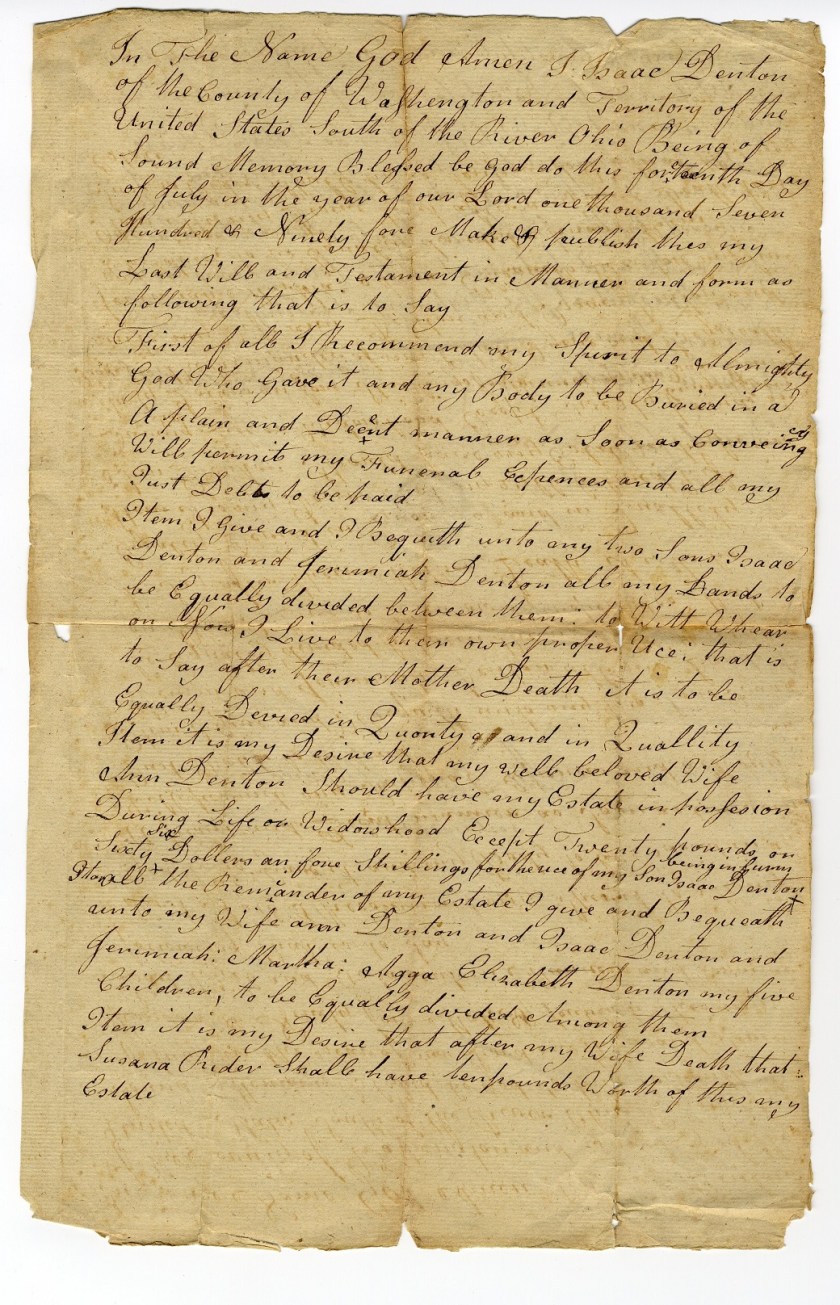 In The Name God Amen I Isaac Denton
of the County of Washengton and Territory of the
United States South of the River Ohio Being of
Sound Memory Blessed be god do this forteenth Day
of July in the year of our Lord one thousand Seven
Hundred & Ninely fore Make & publish thes my
Last Will and Testament in Manner and form as
following that is to Say
First of all I Recommend my Spirit to Almighty
God Who Gave it and my Body to be Buried in a
A plain and Decent manner as Soon as Conveingcy
Will permit my Funeral Expences and all my
Just Debts to be paid
Item I Give and I Bequith unto my two Sons Isaac
Denton and Jerimiah Denton all my Lands to
be Equally divided between them: to Witt Whear
on Now I Live to their own proper Uce: that is
to Say after their Mother Death it is to be
Equally Devied in Quontyty and in Quallity
Item it is my Desire that my well beloved Wife
Ann Denton Should have my Estate in possesion
During Life or Widowshood Eccept Twenty pounds or
Sixty Six Dollers an fore Shillings for the uce of my Son Isaac Denton
being in
Item all the Remainder of my Estate I give and Bequeath
unto my Wife ann Denton and Isaac Denton and
Jeremiah: Martha: Agga Elizabeth Denton my five
Children, to be Equally divided Among them
Item it is my Desire that after my Wife Death that:
Susana Rider Shall have ten pounds Worth of this my
Estate